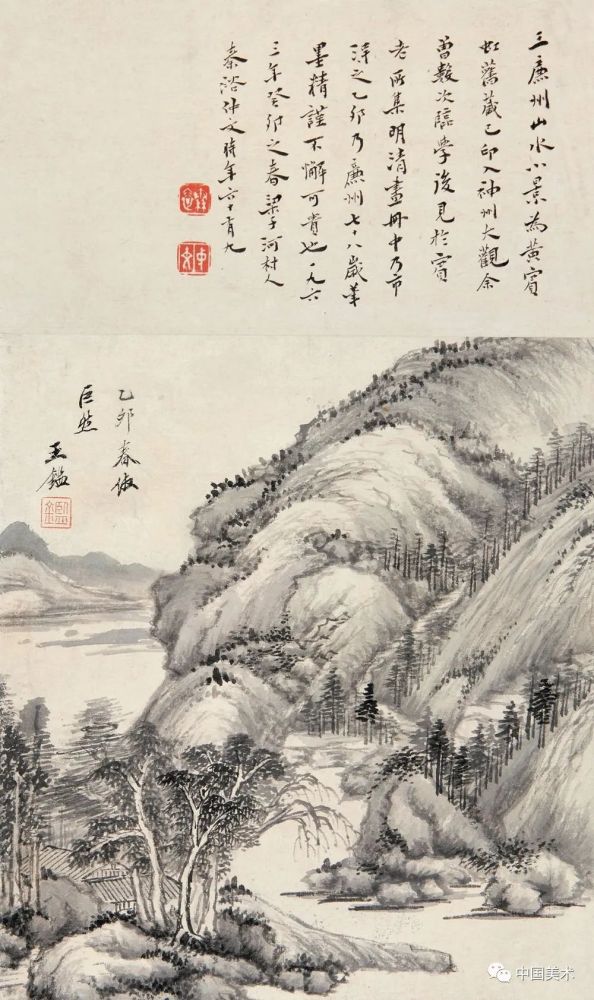 王廉州山水小景為黃賓
虹舊藏已印入神州大觀余
曾數次臨學後見於賓
老所集明清畫冊中乃市
得之乙卯乃廉州七十八歲筆
墨精謹不懈可貴也一九六
三年癸卯之春梁子河村人
秦裕仲文時年六十有九
乙卯春倣
巨然
王鑑
中国美术